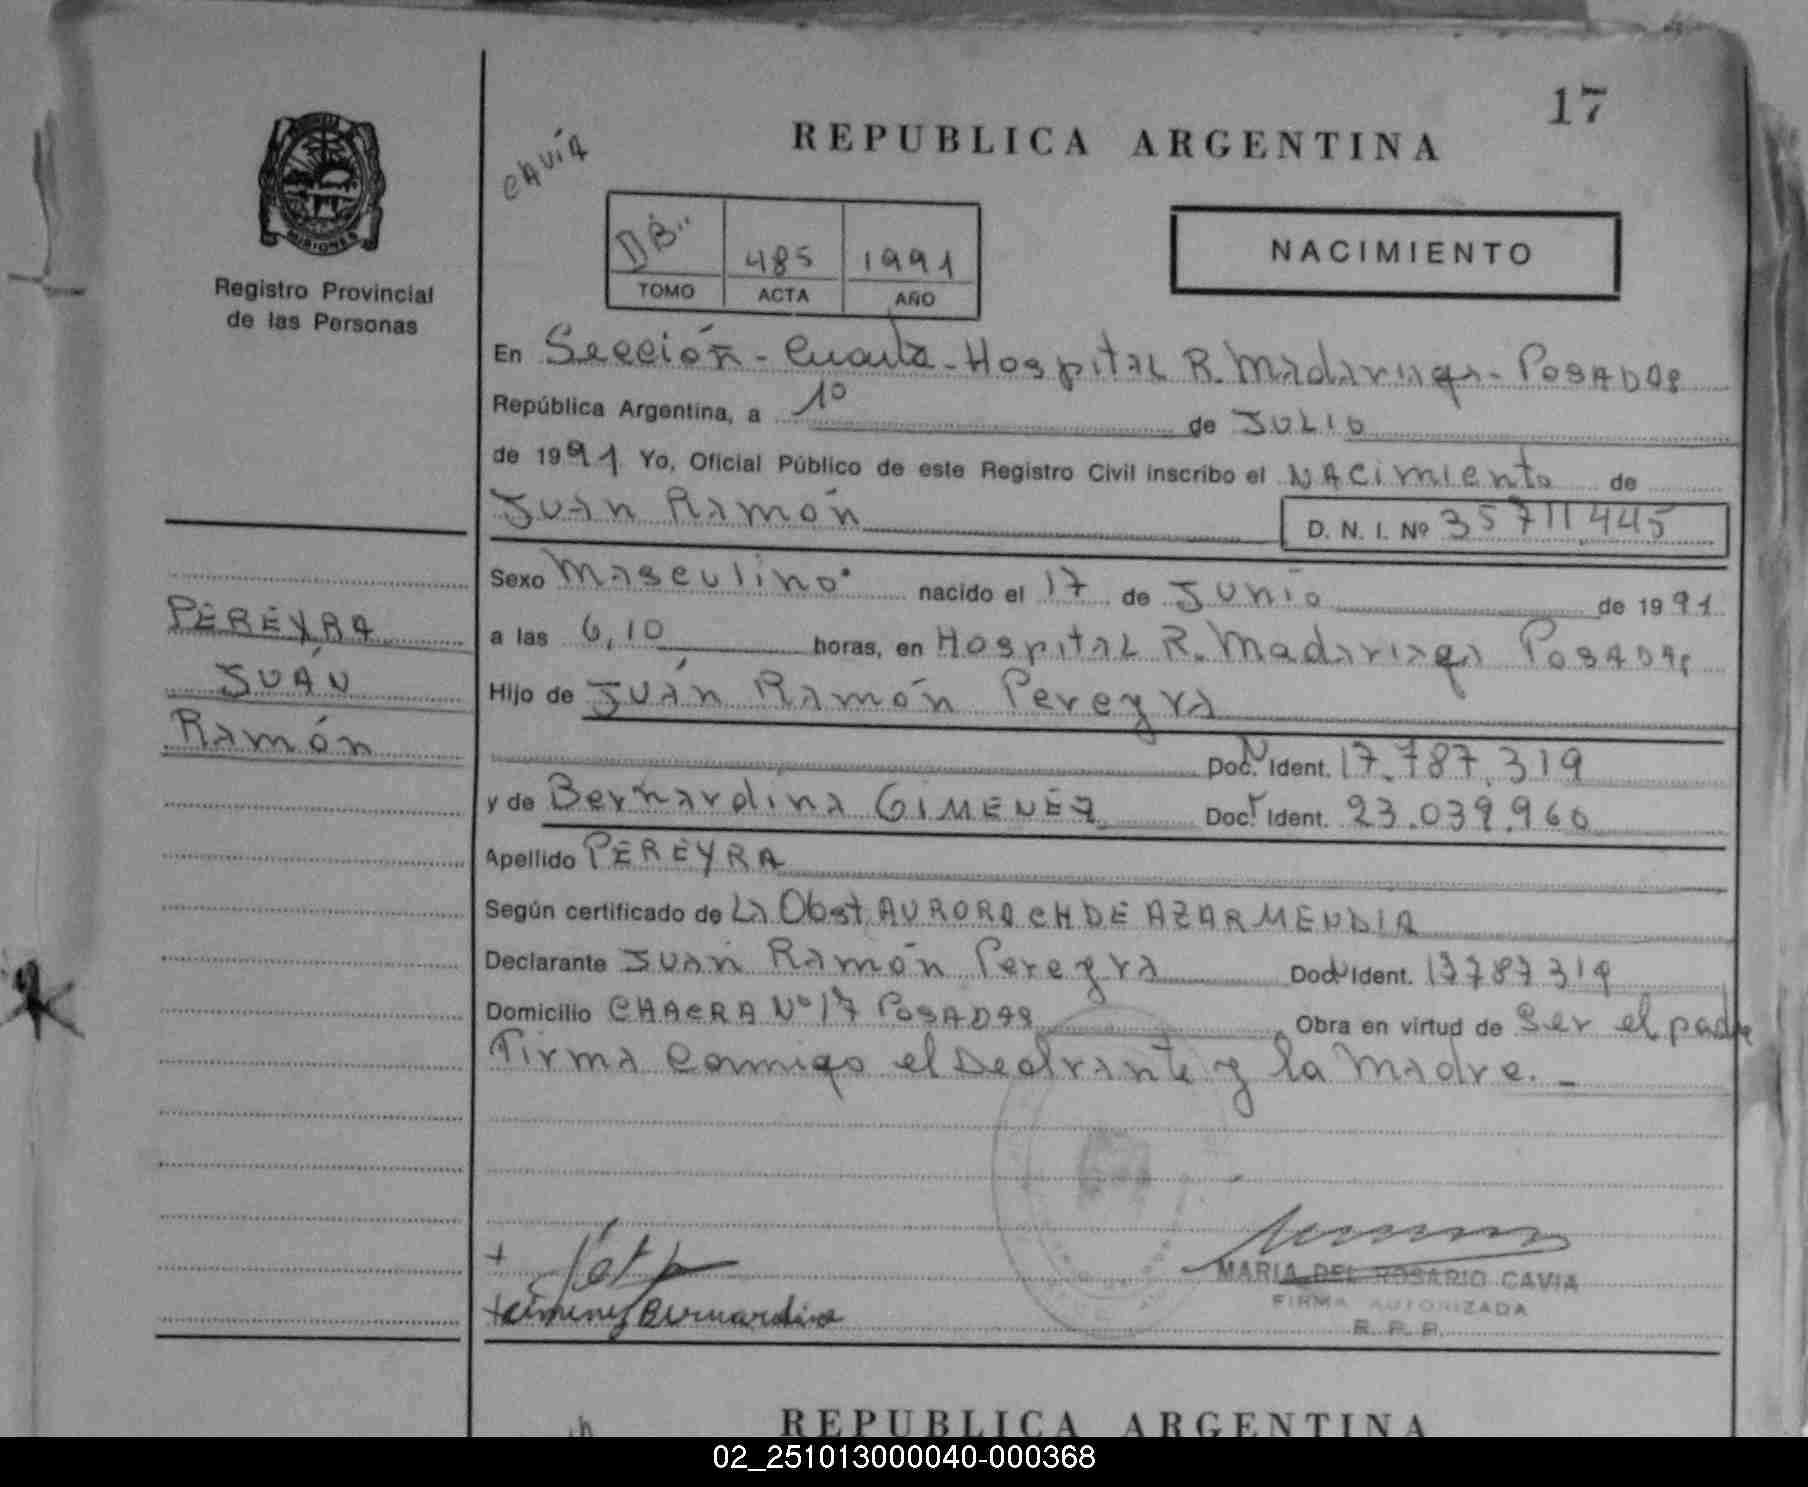 17
REPUBLICA ARGENTINA
CAVIA
MISIONES
Registro Provincial
de las Personas
DB"
485
1991
TOMO
ACTA
AÑO
NACIMIENTO
En Sección - Cuarta - Hospital R. Madariaga - POSADAS
República Argentina, a 1º de JULIO
de 1991 Yo, Oficial Público de este Registro Civil inscribo el NACimiento de
Juan Ramón
D. N. I. Nº 35711.445
Sexo Masculino nacido el 17 de Junio de 1991
a las 6,10 horas, en Hospital R. Madariaga POSADAS
Hijo de Juán Ramón Pereyra
Doc. Ident. 17.787.319
y de Bernardina GIMENEZ Doc. Ident. 23.039.960
Apellido PEREYRA
Según certificado de La Obst. AURORA CH DE AZARMENDIA
Declarante Juan Ramón Pereyra Doc Ident. 17787319
Domicilio CHACRA Nº 17 POSADAS Obra en virtud de Ser el padre
Firma Conmigo el Declrante y la Madre. -
PEREYRA
JUÁN
Ramón
Gimenez Bernardina
MARIA DEL ROSARIO CAVIA
FIRMA AUTORIZADA
R. P. P.
REPUBLICA ARGENTINA
02_251013000040-000368